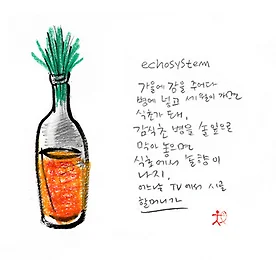 echosystem
가을에 감을 주어다
병에 넣고 세 달이 가면
식초가 돼,
감식초 병을 솔잎으로
막아 놓으면
식초에서 솔향이
나지,
어느날 TV에서 시골
할머니가